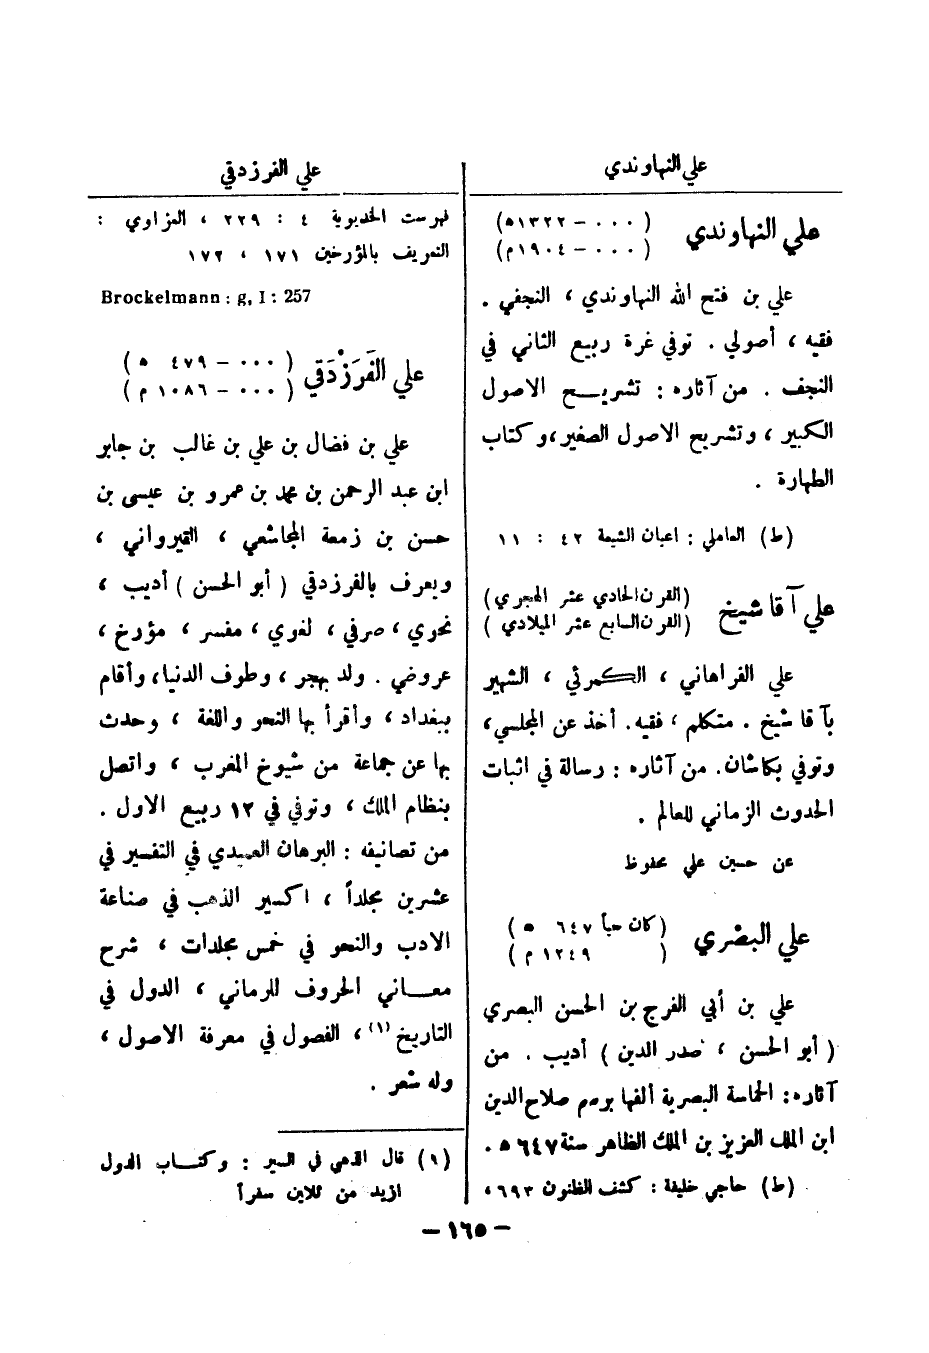 علي النهاوندي
علي النهاوندي
( ٠٠٠ – ١٣٢٢ه)
( ٠٠٠ – ١٩٠٤م)
علي بن فتح الله النهاوندي ، النجفي .
فقيه ، أصولي . توفي غرة ربيع الثاني في
النجف . من آثاره : تشريح الاصول
الكبير ، وتشريح الاصول الصغير، وكتاب
الطهارة .
(ط) العاملي : اعيان الشيعة ٤٢ : ١١
علي آقا شيخ
(القرن الحادي عشر الهجري)
(القرن السابع عشر الميلادي )
علي الفراهاني ، الكمرئي ، الشهير
بآقا شيخ . متكلم ، فقيه. أخذ عن المجلسي،
وتوفي بكاشان. من آثاره : رسالة في اثبات
الحدوث الزماني للعالم .
عن حسين علي محفوظ
علي البصري
( كان حياً ٦٤٧ ه )
( ١٢٤٩ م )
علي بن أبي الفرج بن الحسن البصري
( أبو الحسن ، صدر الدين ) أديب . من
آثاره: الحماسة البصرية ألفها برسم صلاح الدين
ابن الملك العزيز بن الملك الظاهر سنة ٦٤٧ ه .
(ط) حاجي خليفة : كشف الظنون ٦٩٣ ،
علي الفرزدقي
فهرست الخديوية ٤ : ٢٢٩ ، العزاوي :
التعريف بالمؤرخين ١٧١ ، ١٧٢
Brockelmann : g, I : 257
علي الفَرَزْدَقي
( ٠٠٠ – ٤٧٩ ه )
( ٠٠٠ – ١٠٨٦ م )
علي بن فضال بن علي بن غالب بن جابر
ابن عبد الرحمن بن محمد بن عمرو بن عيسى بن
حسن بن زمعة المجاشعي ، القيرواني ،
ويعرف بالفرزدقي ( أبو الحسن ) أديب ،
نحوي ، صرفي ، لغوي ، مفسر ، مؤرخ ،
عروضي . ولد بهجر ، وطوف الدنيا، وأقام
ببغداد ، وأقرأ بها النحو واللغة ، وحدث
بها عن جماعة من شيوخ المغرب ، واتصل
بنظام الملك ، وتوفي في ١٢ ربيع الاول .
من تصانيفه : البرهان العميدي في التفسير في
عشرين مجلداً ، اكسير الذهب في صناعة
الادب والنحو في خمس مجلدات ، شرح
معاني الحروف للرماني ، الدول في
التاريخ (١) ، الفصول في معرفة الاصول ،
وله شعر .
(١) قال الذهبي في السير : وكتاب الدول
ازيد من ثلاثين سفراً
– ١٦٥ –